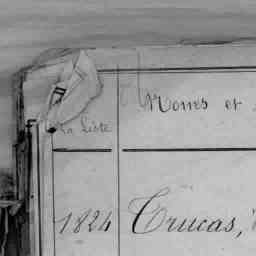 Noms et
La Liste
1824 Crucas,